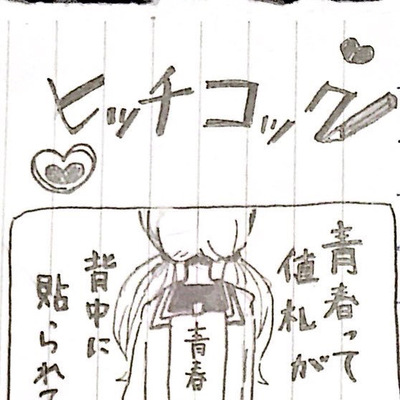 ヒッチコック
青春って
値札が
背中に
貼られて
青春